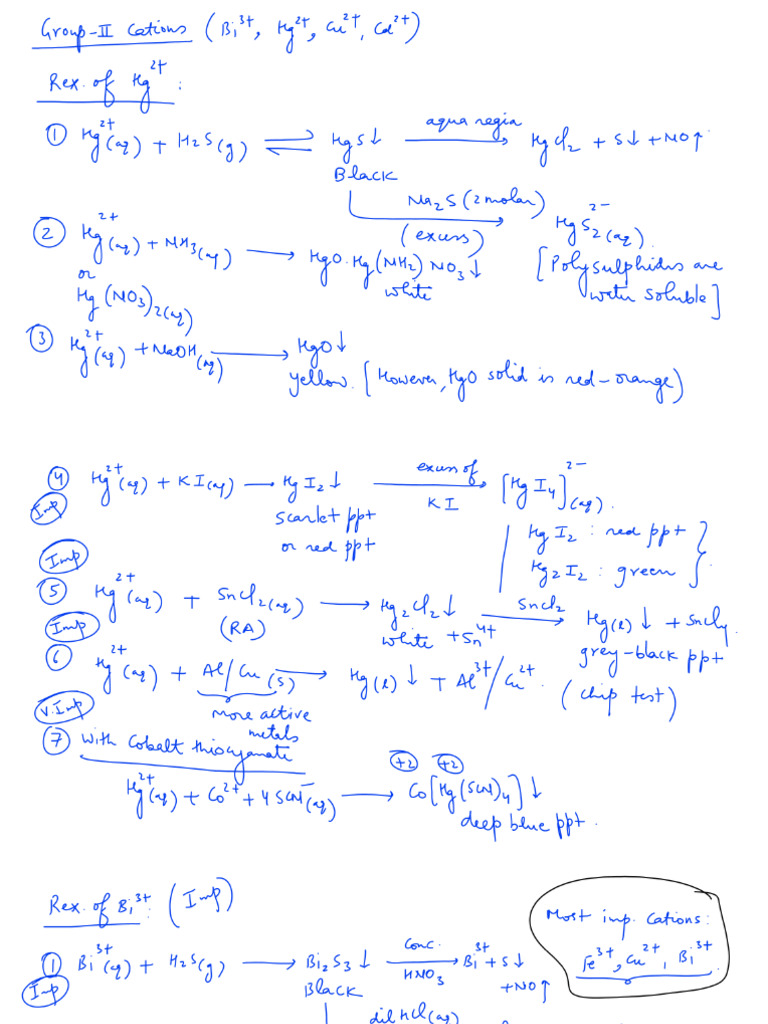 Group-II Cations (Bi³⁺, Hg²⁺, Cu²⁺, Cd²⁺)
Rex. of Hg²⁺ :
① Hg²⁺(aq) + H2S(g) ⇌ HgS↓ aqua regia → HgCl2 + S↓ + NO↑.
Black
Na2S (2 molar) (excess) → HgS2²⁻(aq).
[Polysulphides are water soluble]
② Hg²⁺(aq) + NH3(aq) → HgO.Hg(NH2)NO3↓
or white
Hg(NO3)2(aq)
③ Hg²⁺(aq) + NaOH(aq) → HgO↓
yellow. [However, HgO solid is red-orange)
④ Hg²⁺(aq) + KI(aq) → HgI2↓ excess of KI → [HgI4]²⁻(aq).
Imp scarlet ppt
or red ppt
HgI2 : red ppt
Hg2I2 : green
Imp
⑤ Hg²⁺(aq) + SnCl2(aq) → Hg2Cl2↓ SnCl2 → Hg(l)↓ + SnCl4
(RA) white + Sn⁴⁺ grey-black ppt
Imp
⑥ Hg²⁺(aq) + Al/Cu(s) → Hg(l)↓ + Al³⁺/Cu²⁺. (chip test)
more active
metals
V.Imp
⑦ With Cobalt thiocyanate
Hg²⁺(aq) + Co²⁺ + 4SCN⁻(aq) → Co[Hg(SCN)4]↓
+2 +2
deep blue ppt.
Rex. of Bi³⁺: (Imp)
Most imp. cations:
Fe³⁺, Cu²⁺, Bi³⁺
① Bi³⁺(aq) + H2S(g) → Bi2S3↓ Conc. HNO3 → Bi³⁺ + S↓
Imp Black + NO↑
dil HCl(aq)